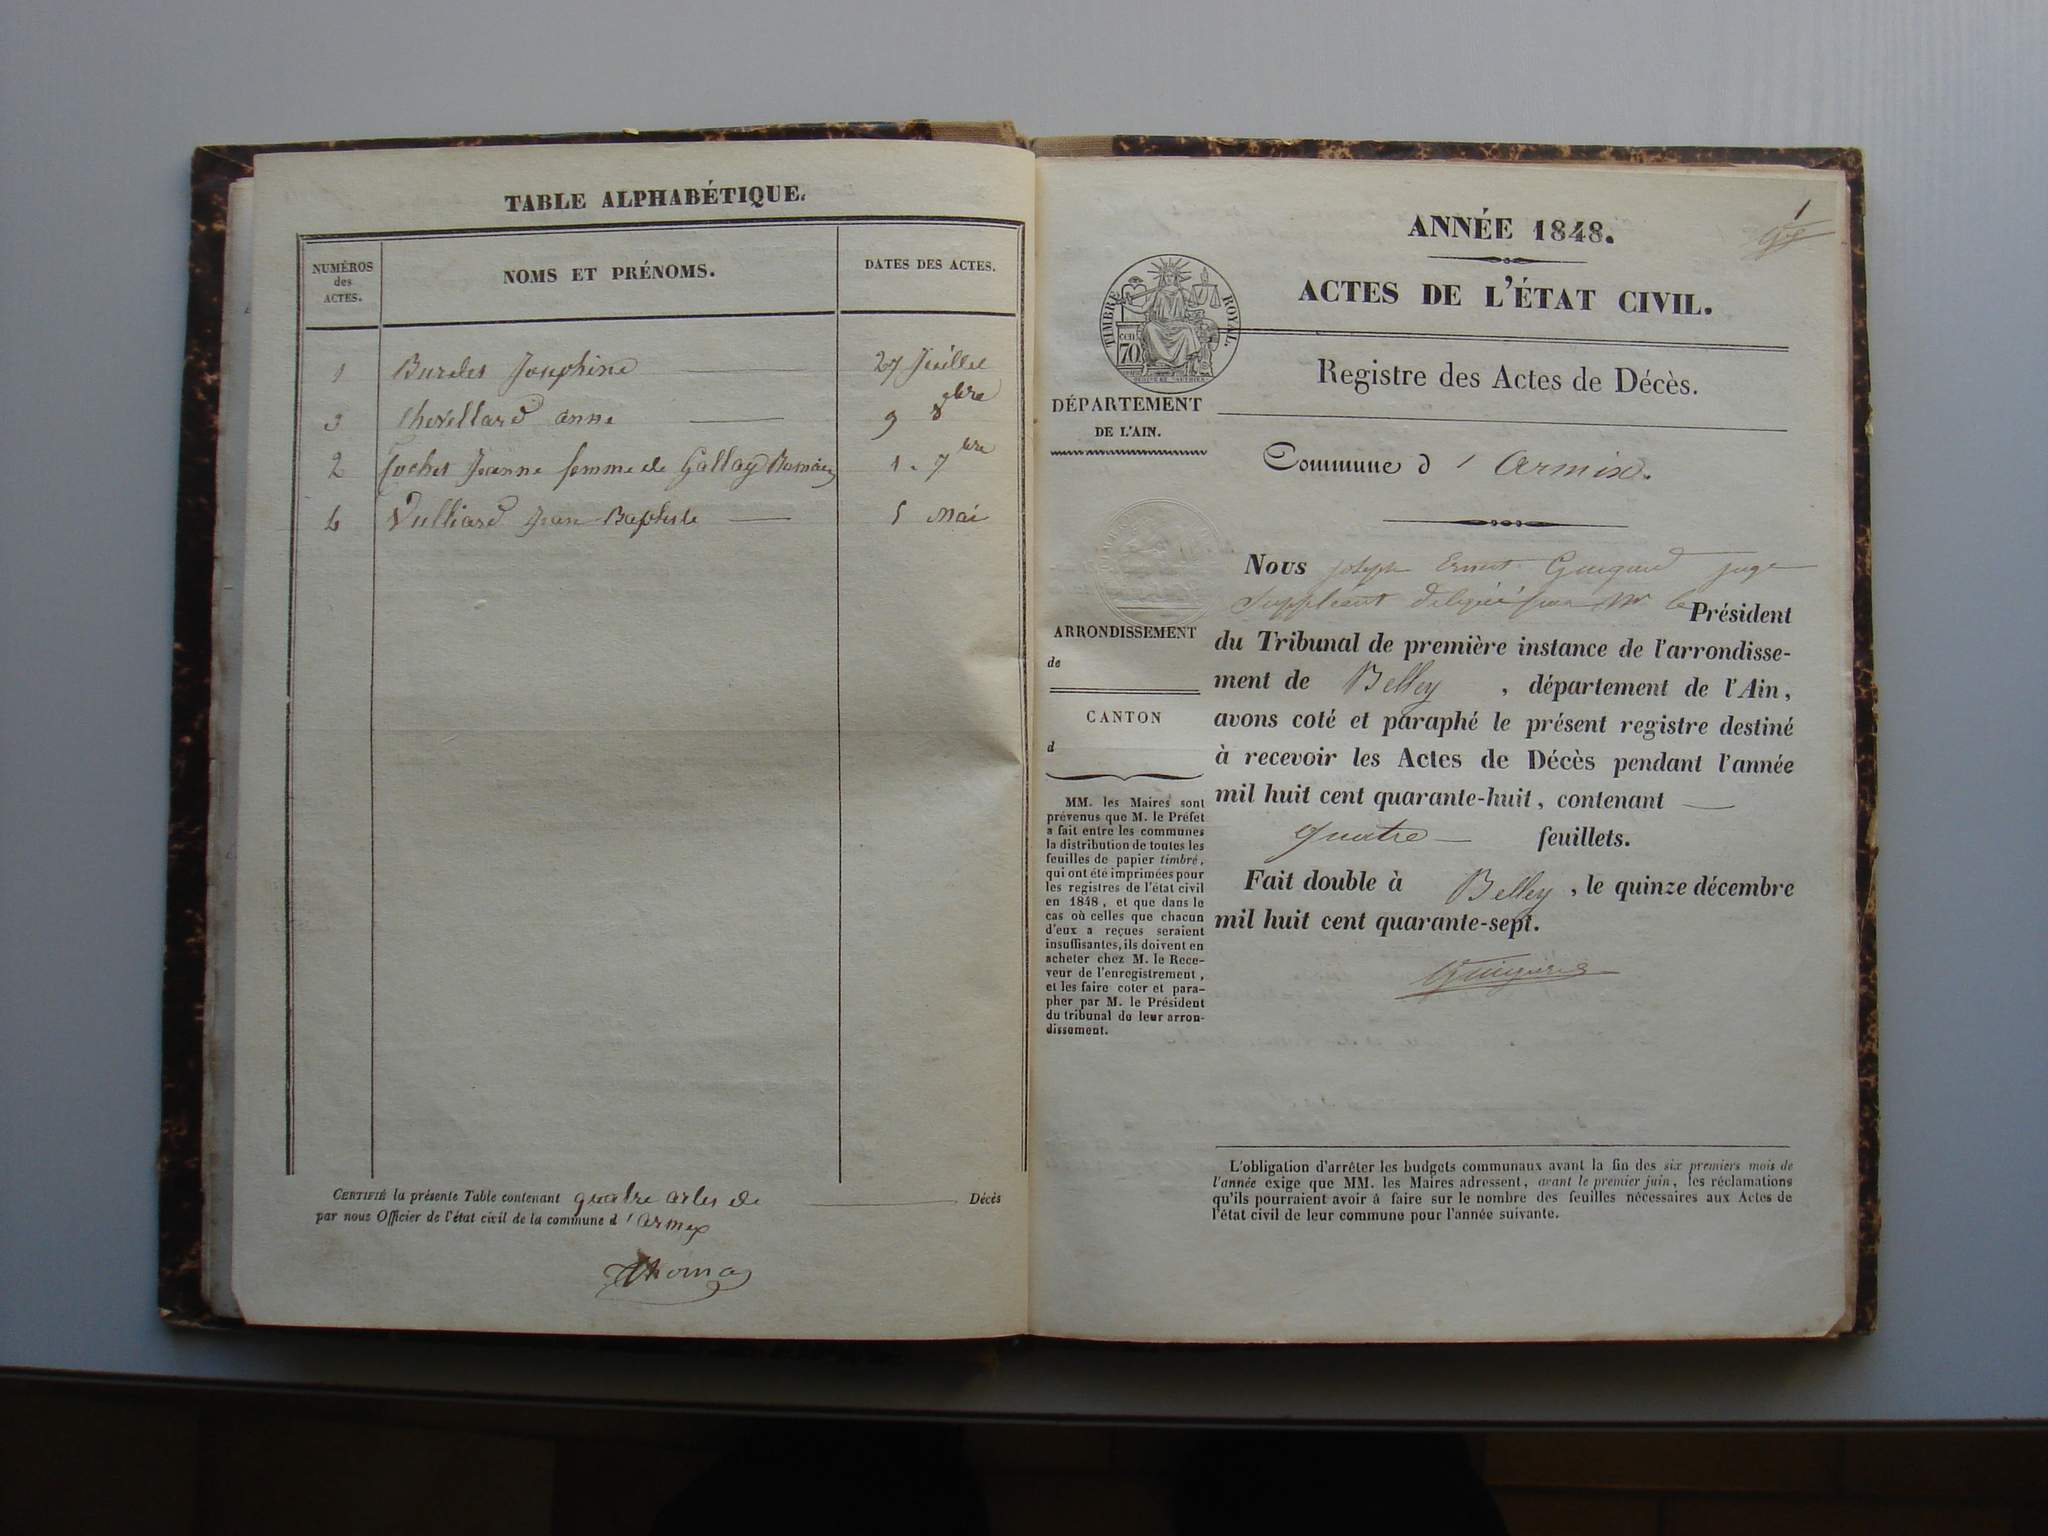 TABLE ALPHABÉTIQUE.
NUMÉROS des ACTES.
NOMS ET PRÉNOMS.
DATES DES ACTES.
1 Burdet Josephine 27 Juillet
3 Chevellard anne 9 8bre
2 Cochet Jeanne femme de Gallay Romain 1. 7bre
4 Vulliard Jean Baptiste 5 Mai
CERTIFIÉ la présente Table contenant quatre actes de Décès
par nous Officier de l'état civil de la commune d'armix
Thomas
1
ANNÉE 1848.
ACTES DE L'ÉTAT CIVIL.
TIMBRE ROYAL.
70 cen
Registre des Actes de Décès.
DÉPARTEMENT
DE L'AIN.
Commune d'Armix.
ARRONDISSEMENT
de
CANTON
d
MM. les Maires sont
prévenus que M. le Préfet
a fait entre les communes
la distribution de toutes les
feuilles de papier timbré,
qui ont été imprimées pour
les registres de l'état civil
en 1848, et que dans le
cas où celles que chacun
d'eux a reçues seraient
insuffisantes, ils doivent en
acheter chez M. le Rece-
veur de l'enregistrement,
et les faire coter et para-
pher par M. le Président
du tribunal de leur arron-
dissement.
Nous joseph Ernest Guigard juge
Suppléant délégué par Mr le Président
du Tribunal de première instance de l'arrondisse-
ment de Belley, département de l'Ain,
avons coté et paraphé le présent registre destiné
à recevoir les Actes de Décès pendant l'année
mil huit cent quarante-huit, contenant
quatre feuillets.
Fait double à Belley, le quinze décembre
mil huit cent quarante-sept.
L'obligation d'arrêter les budgets communaux avant la fin des six premiers mois de
l'année exige que MM. les Maires adressent, avant le premier juin, les réclamations
qu'ils pourraient avoir à faire sur le nombre des feuilles nécessaires aux Actes de
l'état civil de leur commune pour l'année suivante.